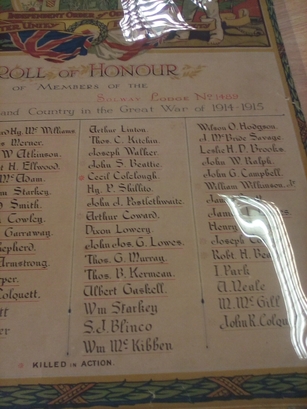 INDEPENDENT ORDER OF
ROLL OF HONOUR
OF MEMBERS OF THE
SOLWAY LODGE No 1489
and Country in the Great War of 1914-1915
Mc Williams
W Atkinson.
H. Ellwood.
McAdam.
Starkey.
Smith.
Cowley.
Garraway.
Armstrong.
Arthur Linton.
Thos. C. Kitchin.
Joseph Walker.
John S. Beattie.
Cecil Colclough.
Hy. P. Skillito.
John J. Postlethwaite.
Arthur Coward.
Dixon Lowery.
John Jos. G. Lowes.
Thos. G. Murray.
Thos. B. Kermean.
Albert Gaskell.
Wm Starkey
S.J. Blinco
Wm Mc Kibben
Wilson O. Hodgson.
J. McBride Savage.
Leslie H. P. Brooks.
John W. Ralph.
John G. Campbell.
William Wilkinson. Jr
Henry
Joseph
Robt. H.
I Park
A. Neale
M. McGill
John R.
KILLED IN ACTION.